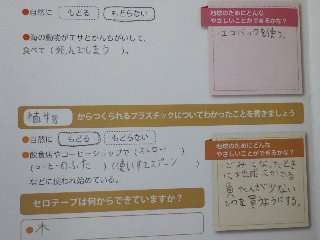 ●自然に もどる もどらない
●海の動物がエサとかんちがいして、
食べて(死んでしまう)。
地球のためにどんな
やさしいことができるかな?
エコバックを使う。
植物 からつくられるプラスチックについてわかったことを書きましょう
●自然に もどる もどらない
●飲食店やコーヒーショップで(ストロー)
(コーヒーのふた)(使いすてスプーン)
などに使われ始めている。
地球のためにどんな
やさしいことができるかな?
ごみになったとき
に地球にかかる
負たんが少ない
ものを買うようにする。
セロテープは何からできていますか?
●木